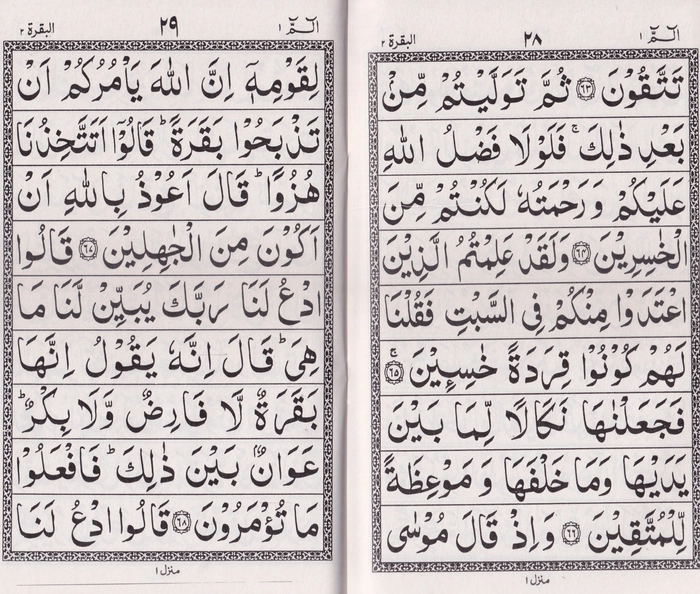 الٓمّٓ ١
٢٨
البقرة ٢
تَتَّقُوْنَ ﴿۶۳﴾ ثُمَّ تَوَلَّيْتُمْ مِّنْۢ
بَعْدِ ذٰلِكَ ۚ فَلَوْلَا فَضْلُ اللّٰهِ
عَلَيْكُمْ وَرَحْمَتُهٗ لَكُنْتُمْ مِّنَ
الْخٰسِرِيْنَ ﴿۶۴﴾ وَلَقَدْ عَلِمْتُمُ الَّذِيْنَ
اعْتَدَوْا مِنْكُمْ فِى السَّبْتِ فَقُلْنَا
لَهُمْ كُوْنُوْا قِرَدَةً خٰسِـِٕيْنَ ۚ﴿۶۵﴾
فَجَعَلْنٰهَا نَكَالًا لِّمَا بَيْنَ
يَدَيْهَا وَمَا خَلْفَهَا وَمَوْعِظَةً
لِّلْمُتَّقِيْنَ ﴿۶۶﴾ وَاِذْ قَالَ مُوْسٰى
منزل ١
الٓمّٓ ١
٢٩
البقرة ٢
لِقَوْمِهٖۤ اِنَّ اللّٰهَ يَاْمُرُكُمْ اَنْ
تَذْبَحُوْا بَقَرَةً ؕ قَالُوْۤا اَتَتَّخِذُنَا
هُزُوًا ؕ قَالَ اَعُوْذُ بِاللّٰهِ اَنْ
اَكُوْنَ مِنَ الْجٰهِلِيْنَ ﴿۶۷﴾ قَالُوا
ادْعُ لَنَا رَبَّكَ يُبَيِّنْ لَّنَا مَا
هِىَ ؕ قَالَ اِنَّهٗ يَقُوْلُ اِنَّهَا
بَقَرَةٌ لَّا فَارِضٌ وَّلَا بِكْرٌ ؕ
عَوَانٌۢ بَيْنَ ذٰلِكَ ؕ فَافْعَلُوْا
مَا تُؤْمَرُوْنَ ﴿۶۸﴾ قَالُوا ادْعُ لَنَا
منزل ١